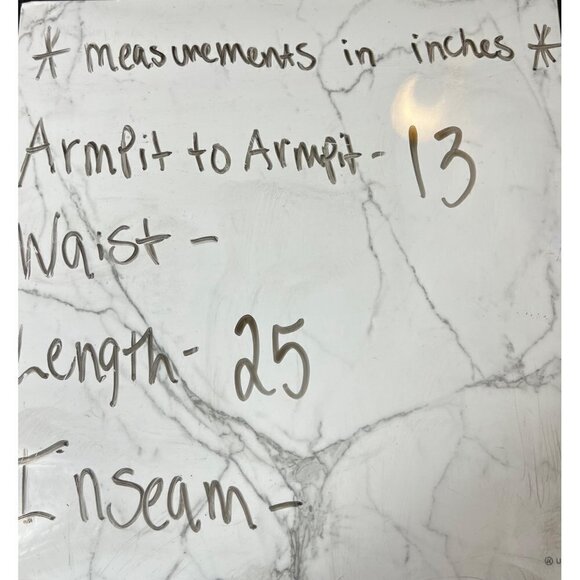 * measurements in inches *
Armpit to Armpit - 13
Waist -
Length - 25
Inseam -